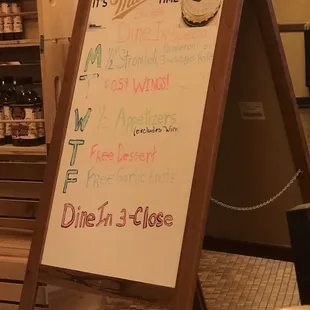 IT'S Miller TIME
Dine In Specials
M ½ Stromboli
T 65¢ WINGS!
W ½ Appetizers
(excludes
T Free Dessert
F Free Garlic Knots
Dine In 3-Close